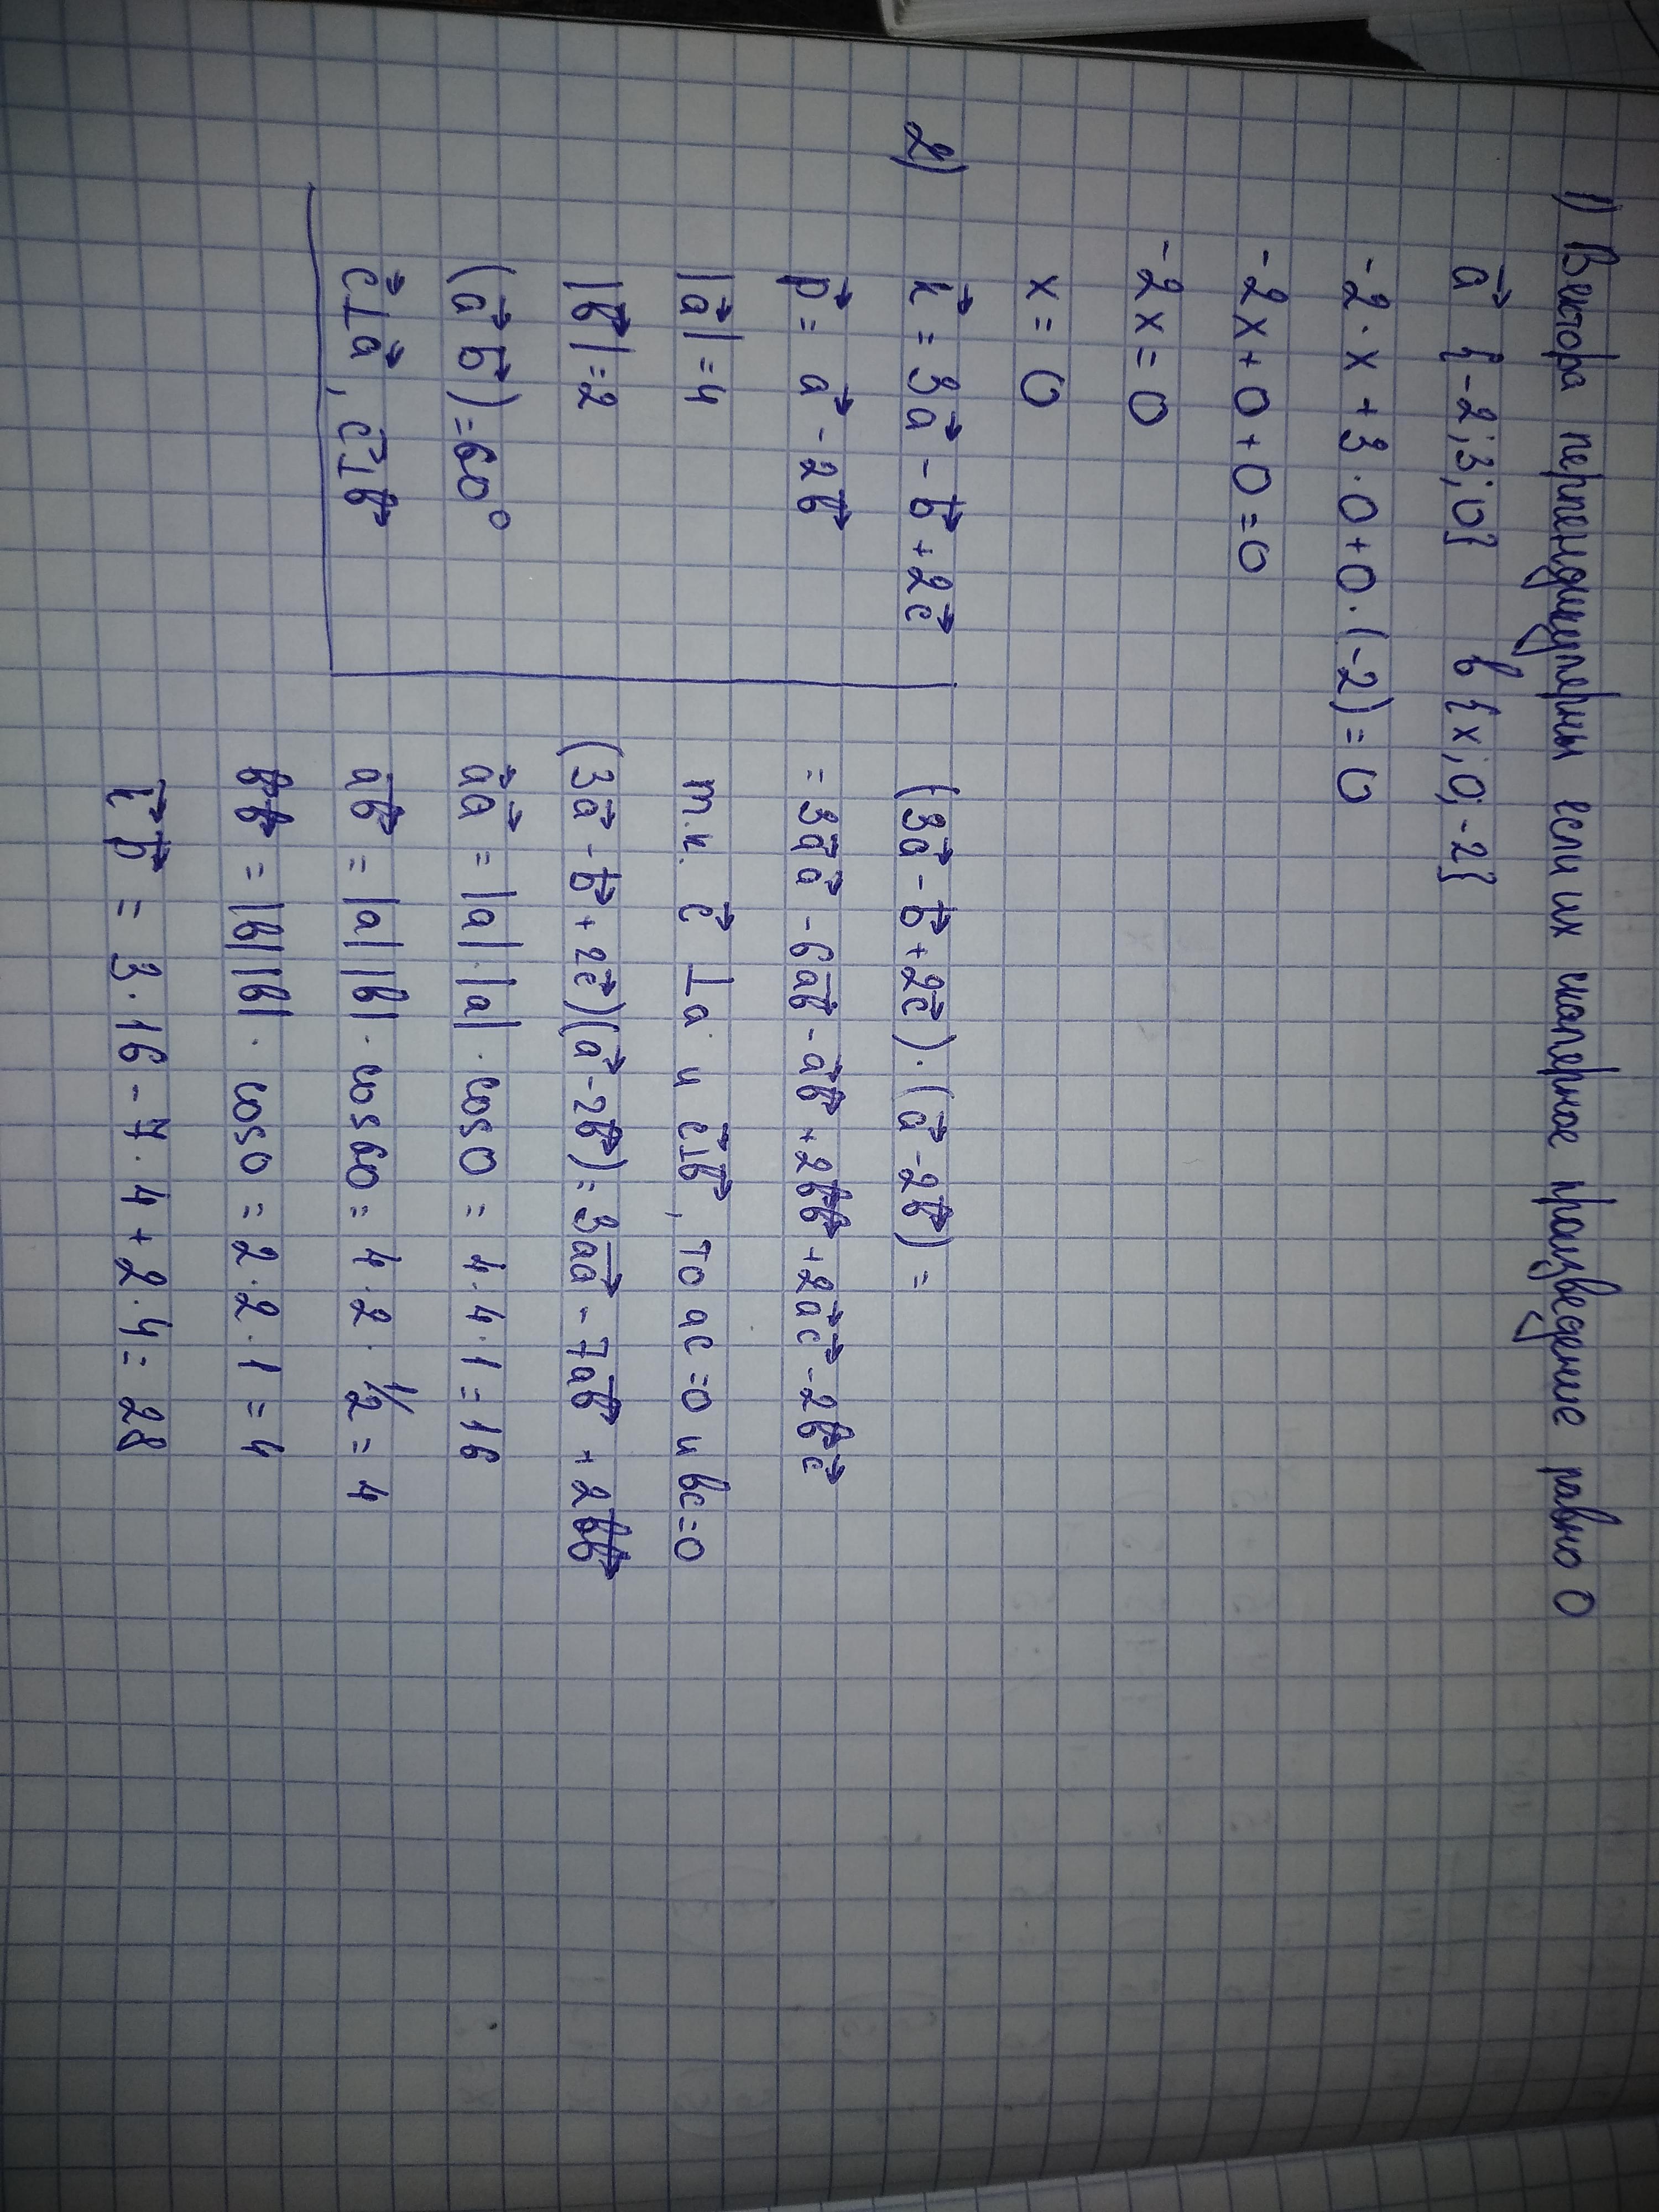 1) Вектора перпендикулярны если их скалярное произведение равно 0
a⃗ {-2; 3; 0} b {x; 0; -2}
-2·x + 3·0 + 0·(-2) = 0
-2x + 0 + 0 = 0
-2x = 0
x = 0
2) k⃗ = 3a⃗ - b⃗ + 2c⃗
p⃗ = a⃗ - 2b⃗
|a⃗| = 4
|b⃗| = 2
(a⃗ b⃗) = 60°
c⃗⊥a⃗, c⃗⊥b⃗
(3a⃗ - b⃗ + 2c⃗)·(a⃗ - 2b⃗) =
= 3a⃗a⃗ - 6a⃗b⃗ - a⃗b⃗ + 2b⃗b⃗ + 2a⃗c⃗ - 2b⃗c⃗
т.к. c⃗ ⊥ a и c⃗⊥b⃗, то ac = 0 и bc = 0
(3a⃗ - b⃗ + 2c⃗)(a⃗ - 2b⃗) = 3a⃗a⃗ - 7a⃗b⃗ + 2b⃗b⃗
a⃗a⃗ = |a|·|a|·cos0 = 4·4·1 = 16
a⃗b⃗ = |a||b|·cos60 = 4·2·1/2 = 4
b⃗b⃗ = |b||b|·cos0 = 2·2·1 = 4
k⃗p⃗ = 3·16 - 7·4 + 2·4 = 28